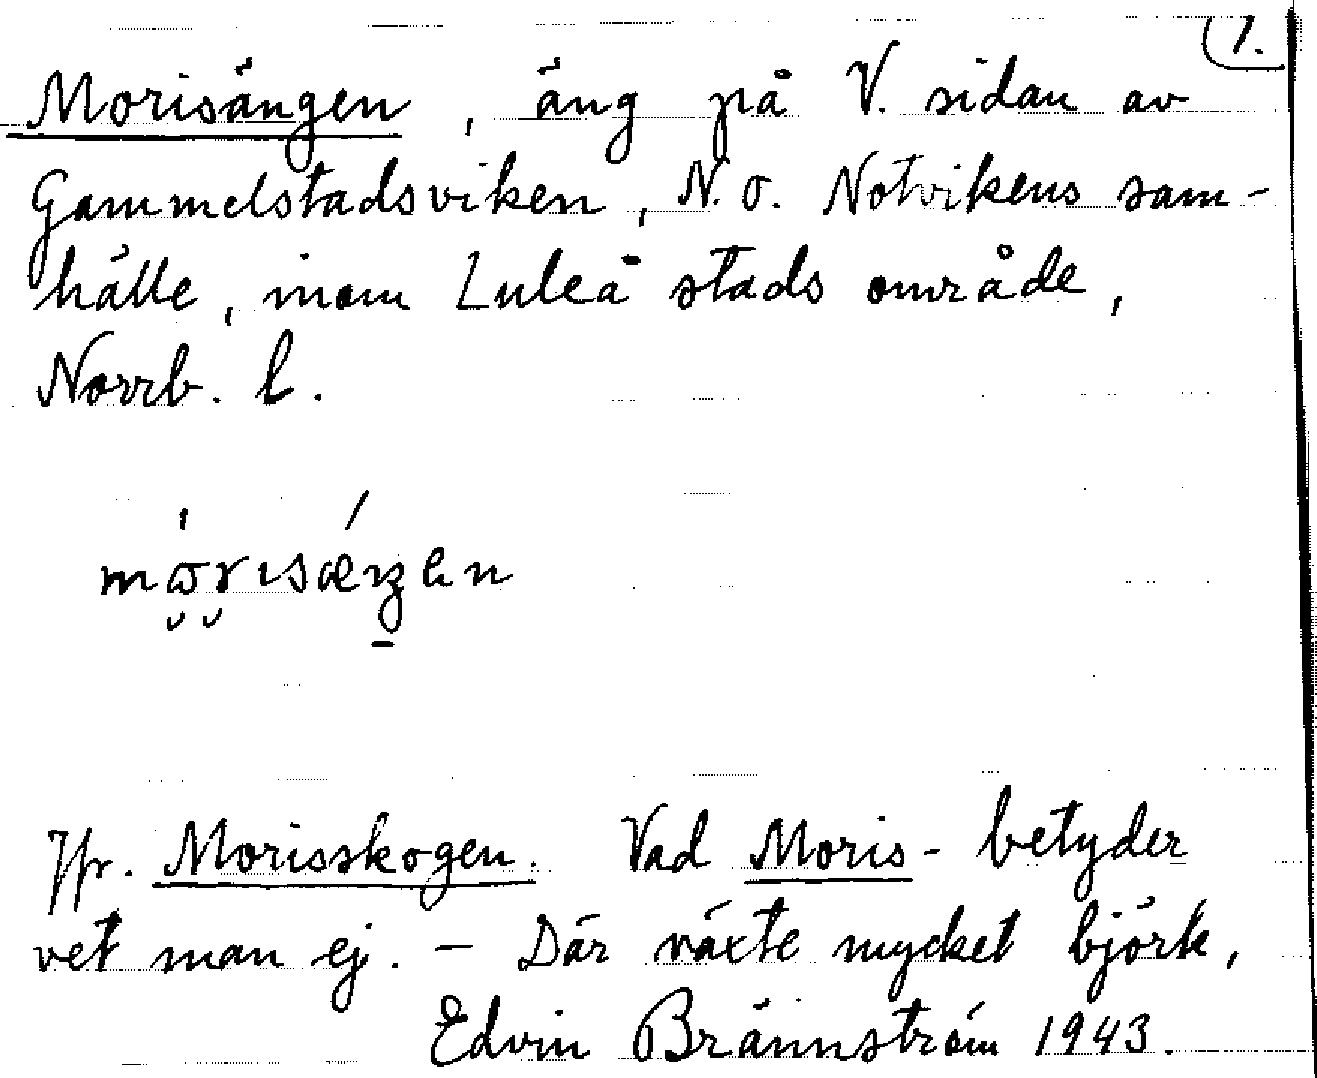 1.
Morisängen, äng på V. sidan av
Gammelstadsviken, N.O. Notvikens sam-
hälle, inom Luleå stads område,
Norrb. l.
Jfr. Morisskogen. Vad Moris- betyder
vet man ej. – Där växte mycket björk,
Edvin Brännström 1943.